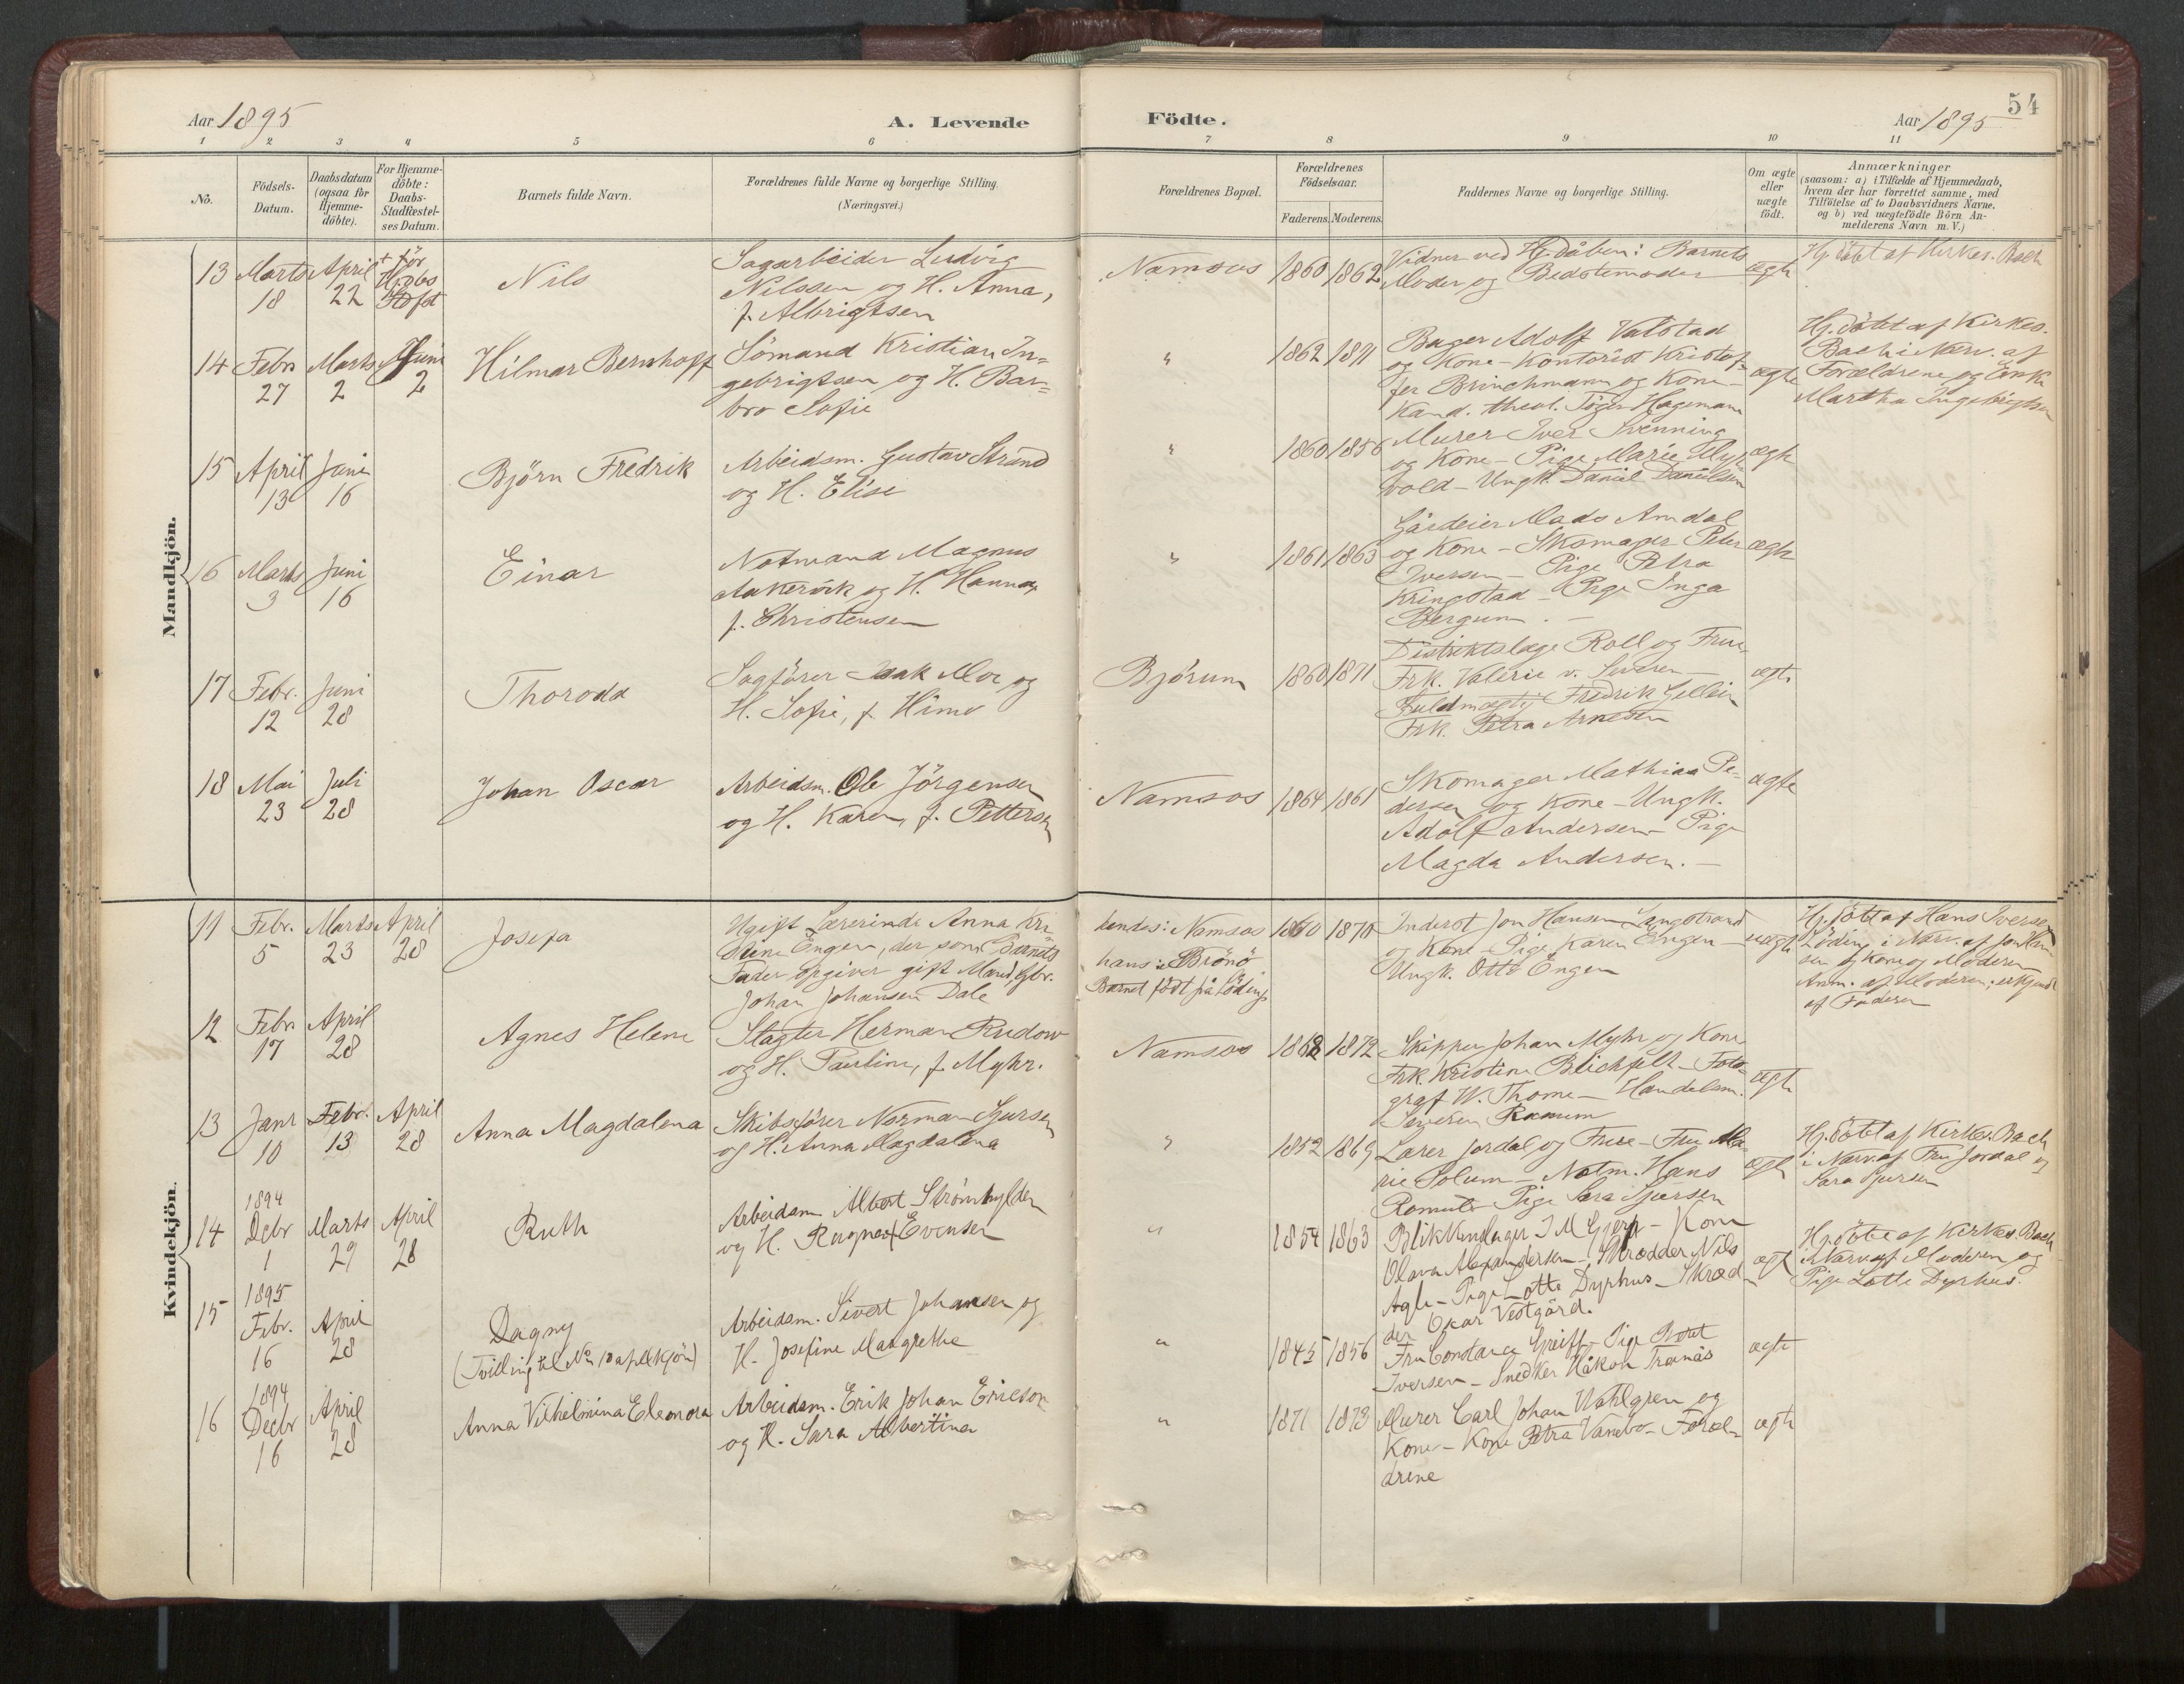 Aar 1895
A. Levende
Födte.
Aar 1895
54
1 2 3 4 5 6 7 8 9 10 11
No.
Födsels-
Datum.
Daabsdatum
(ogsaa for
Hjemme-
döbte).
For Hjemme-
döbte:
Daabs-
Stadfæstel-
ses Datum.
Barnets fulde Navn.
Forældrenes fulde Navne og borgerlige Stilling.
(Næringsvei.)
Forældrenes Bopæl.
Forældrenes
Födselsaar.
Faderens. Moderens.
Faddernes Navne og borgerlige Stilling.
Om ægte
eller
uægte
födt.
Anmærkninger
(saasom: a) i Tilfælde af Hjemmedaab,
hvem der har forrettet samme, med
Tilföielse af to Daabsvidners Navne,
og b) ved uægtefödte Börn An-
melderens Navn m. V.)
Mandkjön.
13
Marts
18
April
22
+ för
Hj.dbs
Stdfst
Nils
Sagarbeider Ludvig
Nilssen og H. Anna,
f. Albrigtsen
Namsos
1860 1862
Vidner ved Hj.dåben: Barnets
Moder og Bedstemoder
ægte
Hj. döbt af Kirkes. Bach
14
Febr
27
Marts
2
Juni
2
Hilmar Bernhoff
Sömand Kristian In=
gebrigtsen og H. Bar=
bro Sofie
"
1862 1871
Bager Adolf Valstad
og Kone - Kontorist Kristof-
fer Brinchmann og Kone -
Kand. theol. Töger Hagemann
ægte
Hj. döbt af Kirkes.
Bach i Nærv. af
Forældrene og Enke
Martha Ingebrigtsen
15
April
13
Juni
16
Björn Fredrik
Arbeidsm. Gustav Strand
og H. Elise
"
1860 1856
Murer Iver Svenning
og Kone - Pige Marie Myr
vold - Ungk. Daniel Danielsen
ægte
16
Marts
3
Juni
16
Einar
Notmand Magnus
Aakervik og H. Hanna,
f. Christensen
"
1861 1863
Gårdeier Mads Amdal
og Kone - Skomager Peter
Iversen - Pige Petra
Kringstad - Pige Inga
Bergum. -
ægte
17
Febr.
12
Juni
28
Thorodd
Sagförer Isak Moe og
H. Sofie, f. Himo
Bjørum
1860 1871
Distriktslæge Roll og Frue
Frk. Valerie v. Severen -
Fuldmægtig Fredrik Gellein
Frk. Petra Arnesen
ægte
18
Mai
23
Juli
28
Johan Oscar
Arbeidsm. Ole Jörgensen
og H. Karen, f. Pettersen
Namsos
1864 1861
Skomager Mathias Pe-
dersen og Kone - Ungk.
Adolf Andersen - Pige
Magda Andersen. -
ægte
Kvindekjön.
11
Febr.
5
Marts
23
April
28
Josefa
Ugift Lærerinde Anna Kri
stine Engen, der som Barnets
Fader opgiver gift Mand, Gbr.
Johan Johansen Dale
hendes: Namsos
hans: Brönö
Barnet födt på Löding
1860 1870
Inderst Jon Hansen Langstrand
og Kone - Pige Karen Engen -
Ungk. Otto Engen
uægte
Hj. döbt af Hans Iversen
Löding i Nærv. af Jon Han
sen og Kone og Moderen
Anm. af Moderen; erkjendt
af Faderen
12
Febr
17
April
28
Agnes Helene
Slagter Herman Rudow
og H. Pauline, f. Myhr.
Namsos
1868 1872
Skipper Johan Myhr og Kone
Frk. Kristine Blichfelt - Foto-
graf W. Thome - Handelsm.
Severin Ramum
ægte
13
Janr
10
Febr.
13
April
28
Anna Magdalena
Skibsförer Norman Sjursen
og H. Anna Magdalena
"
1852 1869
Lærer Jordal og Frue - Fru Ma-
rie Solum - Notm. Hans
Romul - Pige Sara Sjursen
ægte
Hj. döbt af Kirkes. Bach
i Nærv. af Fru Jordal og
Sara Sjursen
14
1894
Debr
1
Marts
29
April
28
Ruth
Arbeidsm. Albert Strömhylden
og H. Ragna f. Evensen
"
1854 1863
Blikkenslager I M Gjerp - Kone
Olava Alexandersen - Skrædder Nils
Agle - Pige Lotte Dyrhus - Skræd-
der Oskar Vestgård.
ægte
Hj. döbt af Kirkes. Bach
i Nærv. af Moderen og
Pige Lotte Dyrhus.
15
1895
Febr.
16
April
28
Dagny
(Tvilling til No 12 af Mkjön)
Arbeidsm. Sivert Johansen og
H. Josefine Margrethe
"
1845 1856
Fru Constance Greiff - Pige
Iversen - Snedker Håkon Trænäs
ægte
16
1894
Decbr
16
April
28
Anna Vilhelmina Eleonora
Arbeidsm. Erik Johan Ericson
og H. Sara Albertina
"
1871 1873
Murer Carl Johan Wahlgren og
Kone - Kone Petra Vanebo - Foræl-
drene
ægte